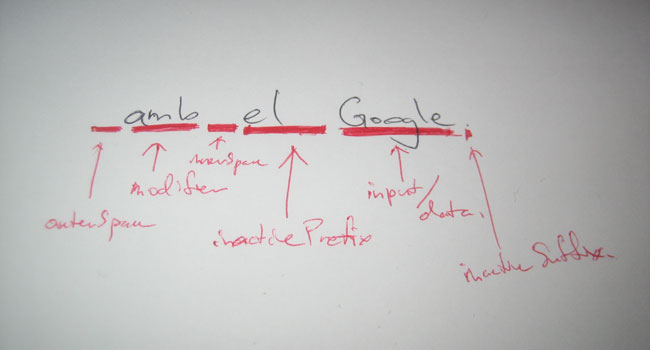 amb el Google.
innerSpace
modifier
outerSpace
inactivePrefix
input/data.
inactive Suffix.